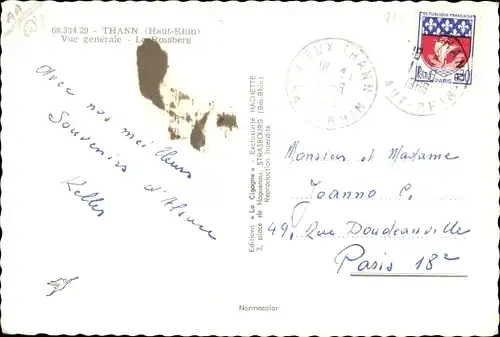 68.334.29 - THANN (Haut-Rhin)
Vue générale - Le Rossberg
Avec nos meilleurs
Souvenirs d'Alsace
Keller
Editions « La Cigogne » - Exclusivité HACHETTE
3, place de Haguenau, STRASBOURG (Bas-Rhin)
Reproduction interdite
VIEUX THANN
RHIN
REPUBLIQUE FRANÇAISE
PARIS
Monsieur et Madame
Joanno C.
49, Rue Doudeauville
Paris 18e
Normacolor